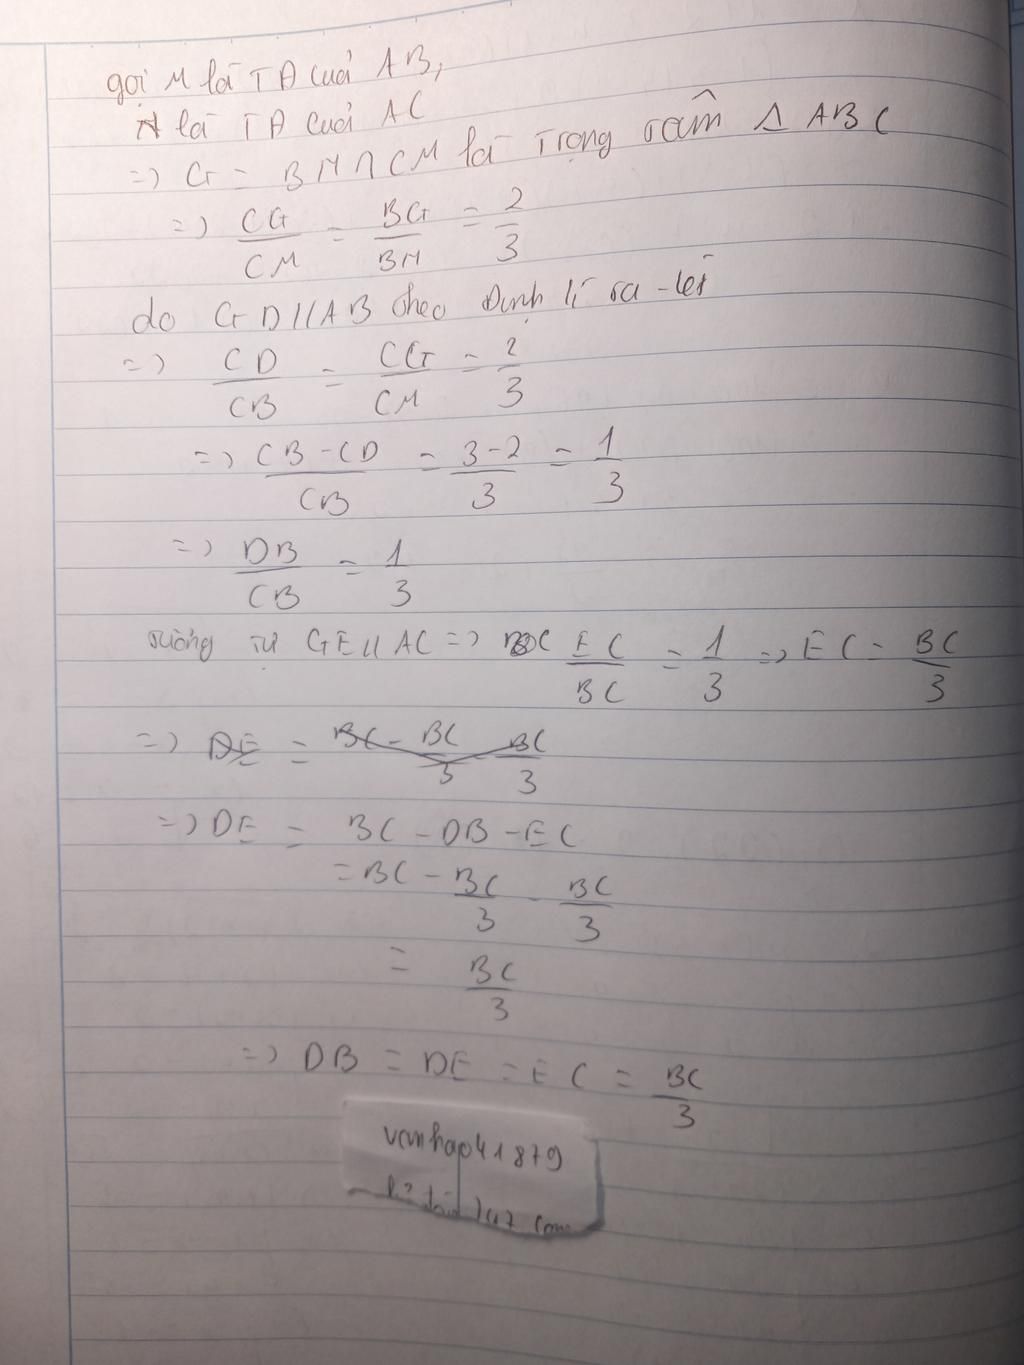 gọi M là TĐ của AB,
N là TĐ của AC
=> G = BN ∩ CM là Trọng tâm Δ ABC
=> CG/CM = BG/BN = 2/3
do GD//AB theo Định lí ta-let
=> CD/CB = CG/CM = 2/3
=> CB-CD/CB = 3-2/3 = 1/3
=> DB/CB = 1/3
tương tự GE//AC => EC/BC = 1/3 => EC = BC/3
=> DE = BC - BC/3 BC/3
=> DE = BC - DB - EC
= BC - BC/3 - BC/3
= BC/3
=> DB = DE = EC = BC/3
vanhap41879